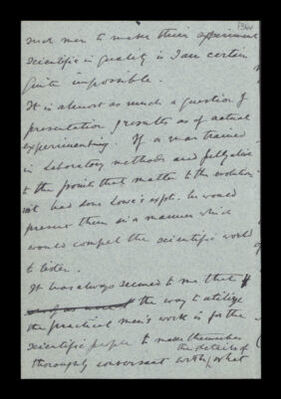 such men to make their experiment
scientific in quality is I am certain
quite impossible.
It is almost as much a question of
presentation of results as of actual
experimenting. If a man trained
in Laboratory methods and fully alive
to the points that matter to the evolution-
ist had done Lowe's expts. he would
present them in a manner which
would compel the scientific world
to listen.
It has always seemed to me that
the way to utilize
the practical men's work is for the
scientific people to make themselves
the details of
thoroughly conversant with what